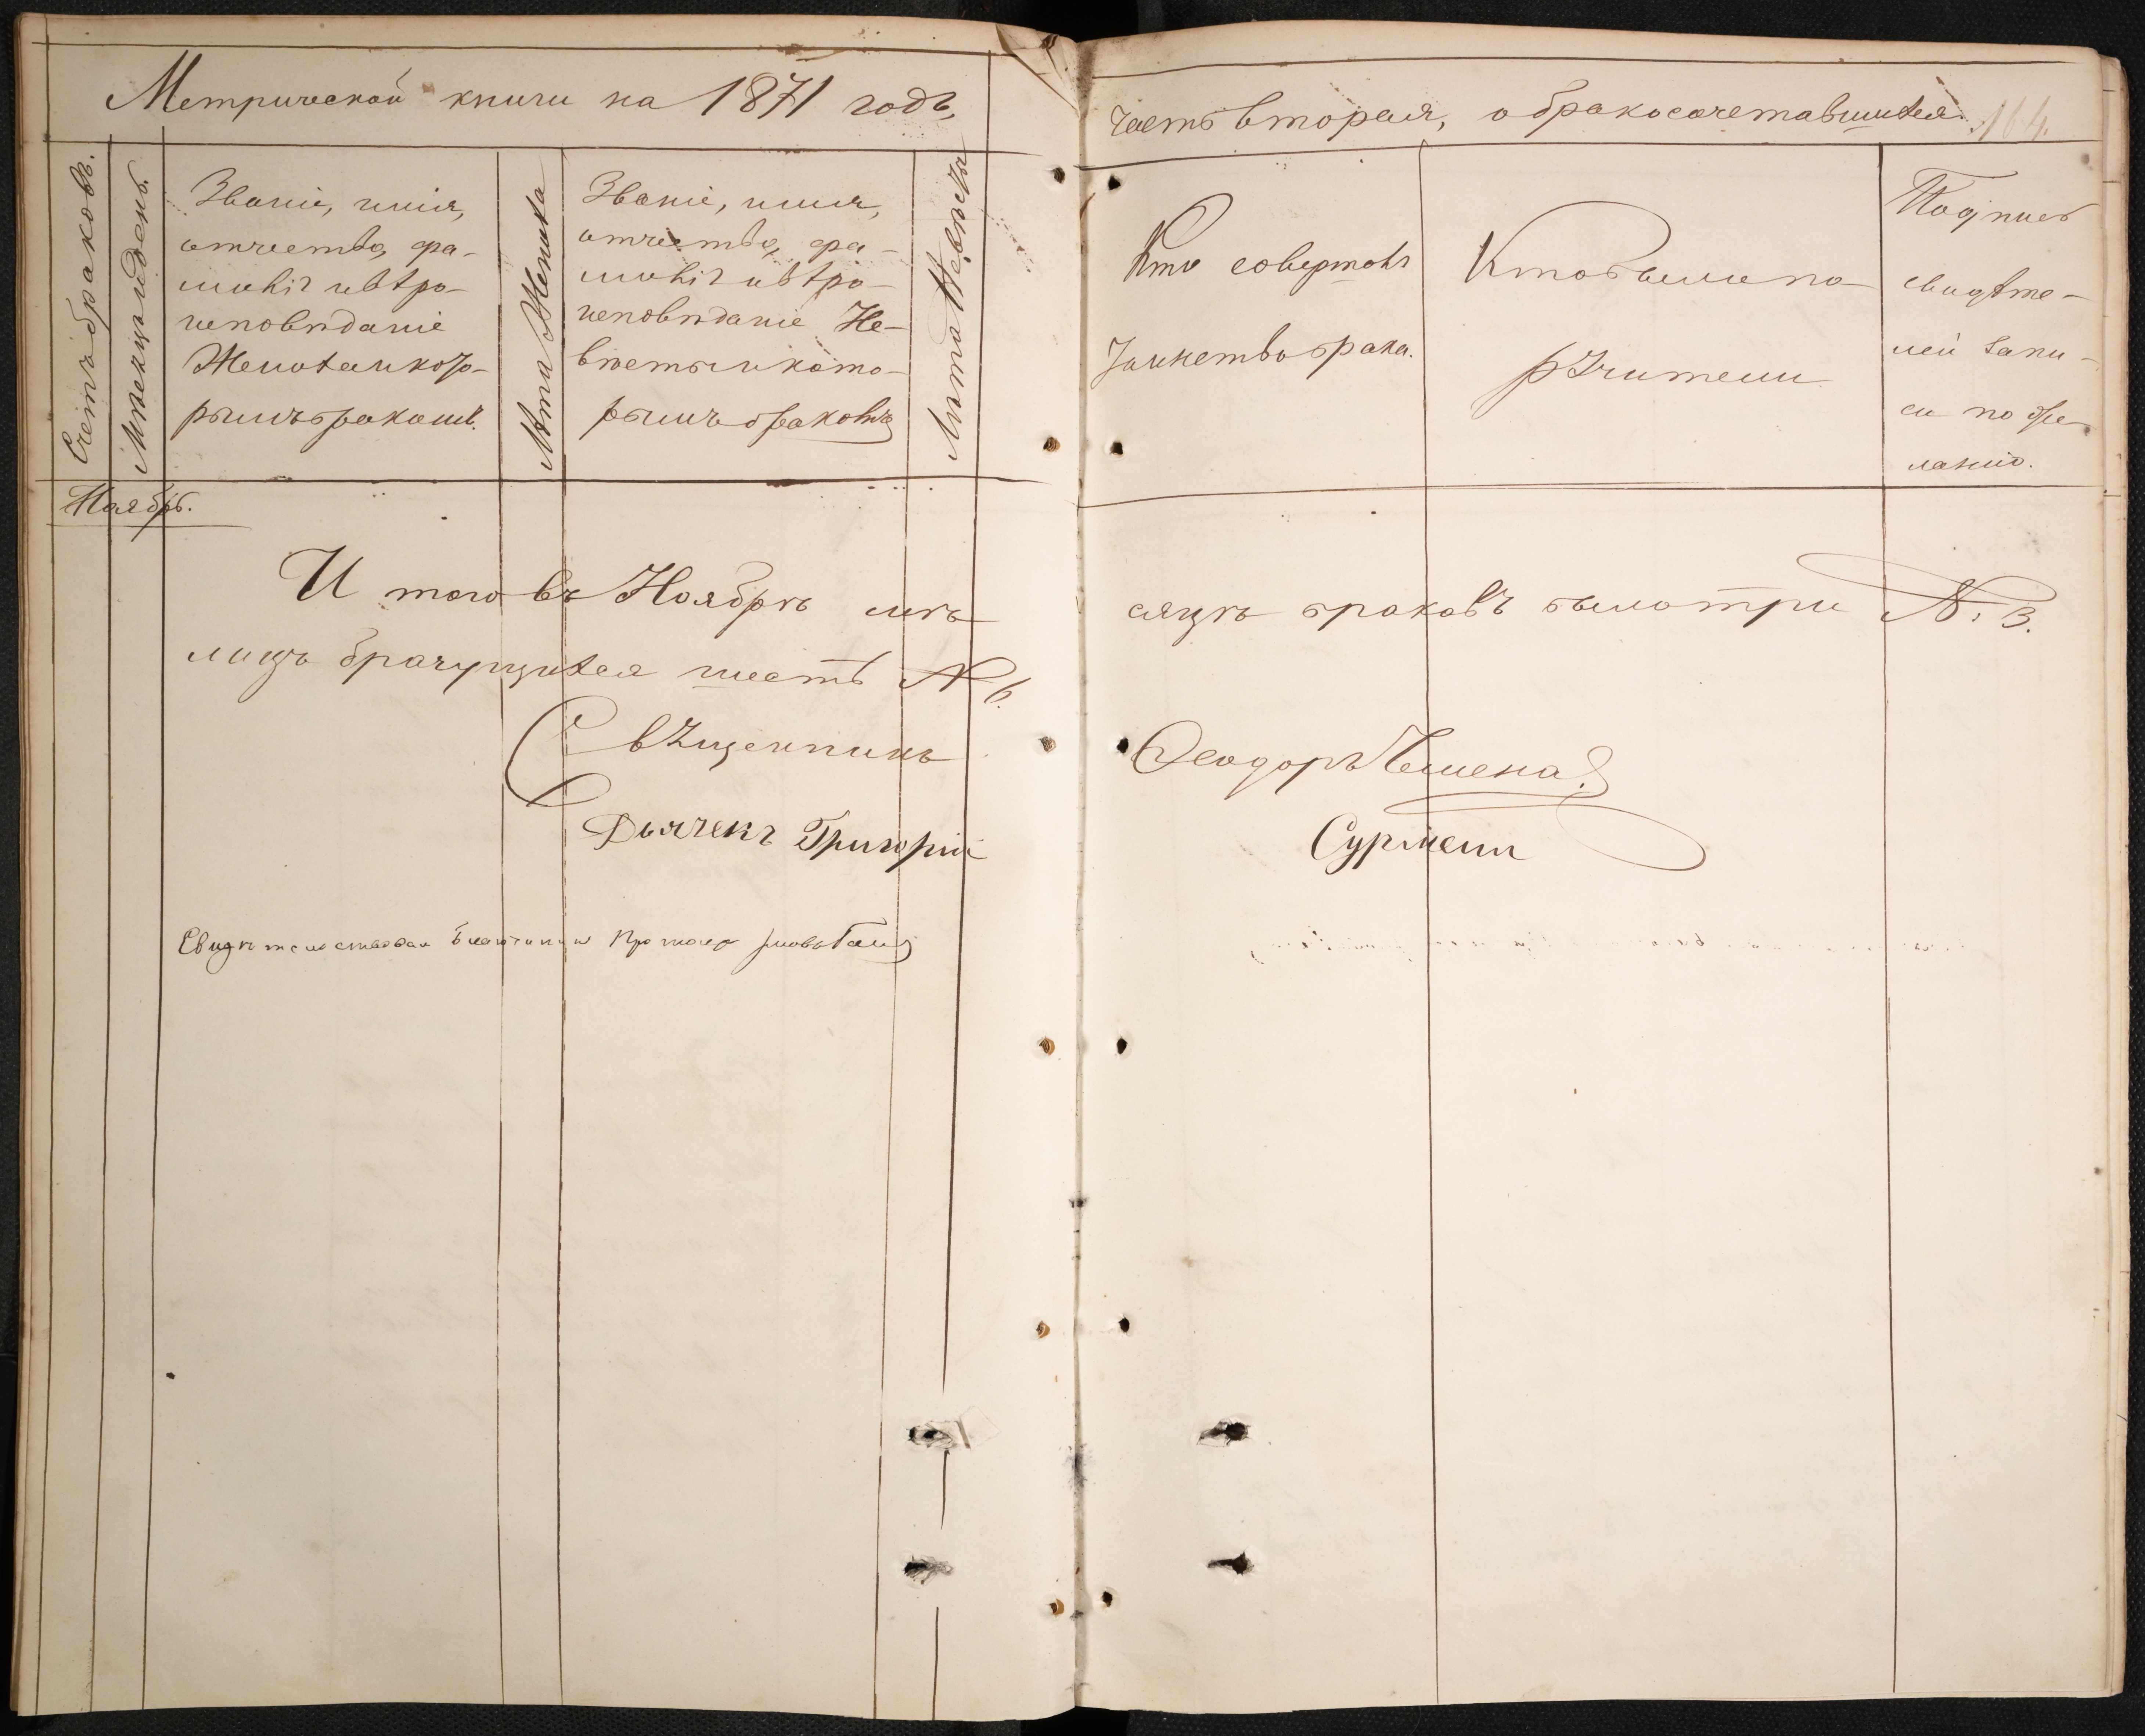 Метрической книги на 1871 годъ,
часть вторая, о бракосочетавшихся. 164.
Счетъ браковъ.
Мѣсяцъ и день.
Званіе, имя,
отчество, фа-
милія и вѣро-
исповѣданіе
Жениха и кото-
рымъ бракомъ.
Лѣта Жениха
Званіе, имя,
отчество, фа-
милія и вѣро-
исповѣданіе Не-
вѣсты и кото-
рымъ бракомъ
Лѣта Невѣсты
Кто совершалъ
Таинство брака.
Кто были по-
ручители
Подпись
свидѣте-
лей запи-
си по же-
ланію.
Ноябрь.
И того въ Ноябрѣ мѣ-
сяцѣ браковъ было три № 3.
лицъ брачущихся шесть № 6.
Священникъ
Феодоръ
Дьячекъ Григорій
Свидѣтельствовал Благочинный